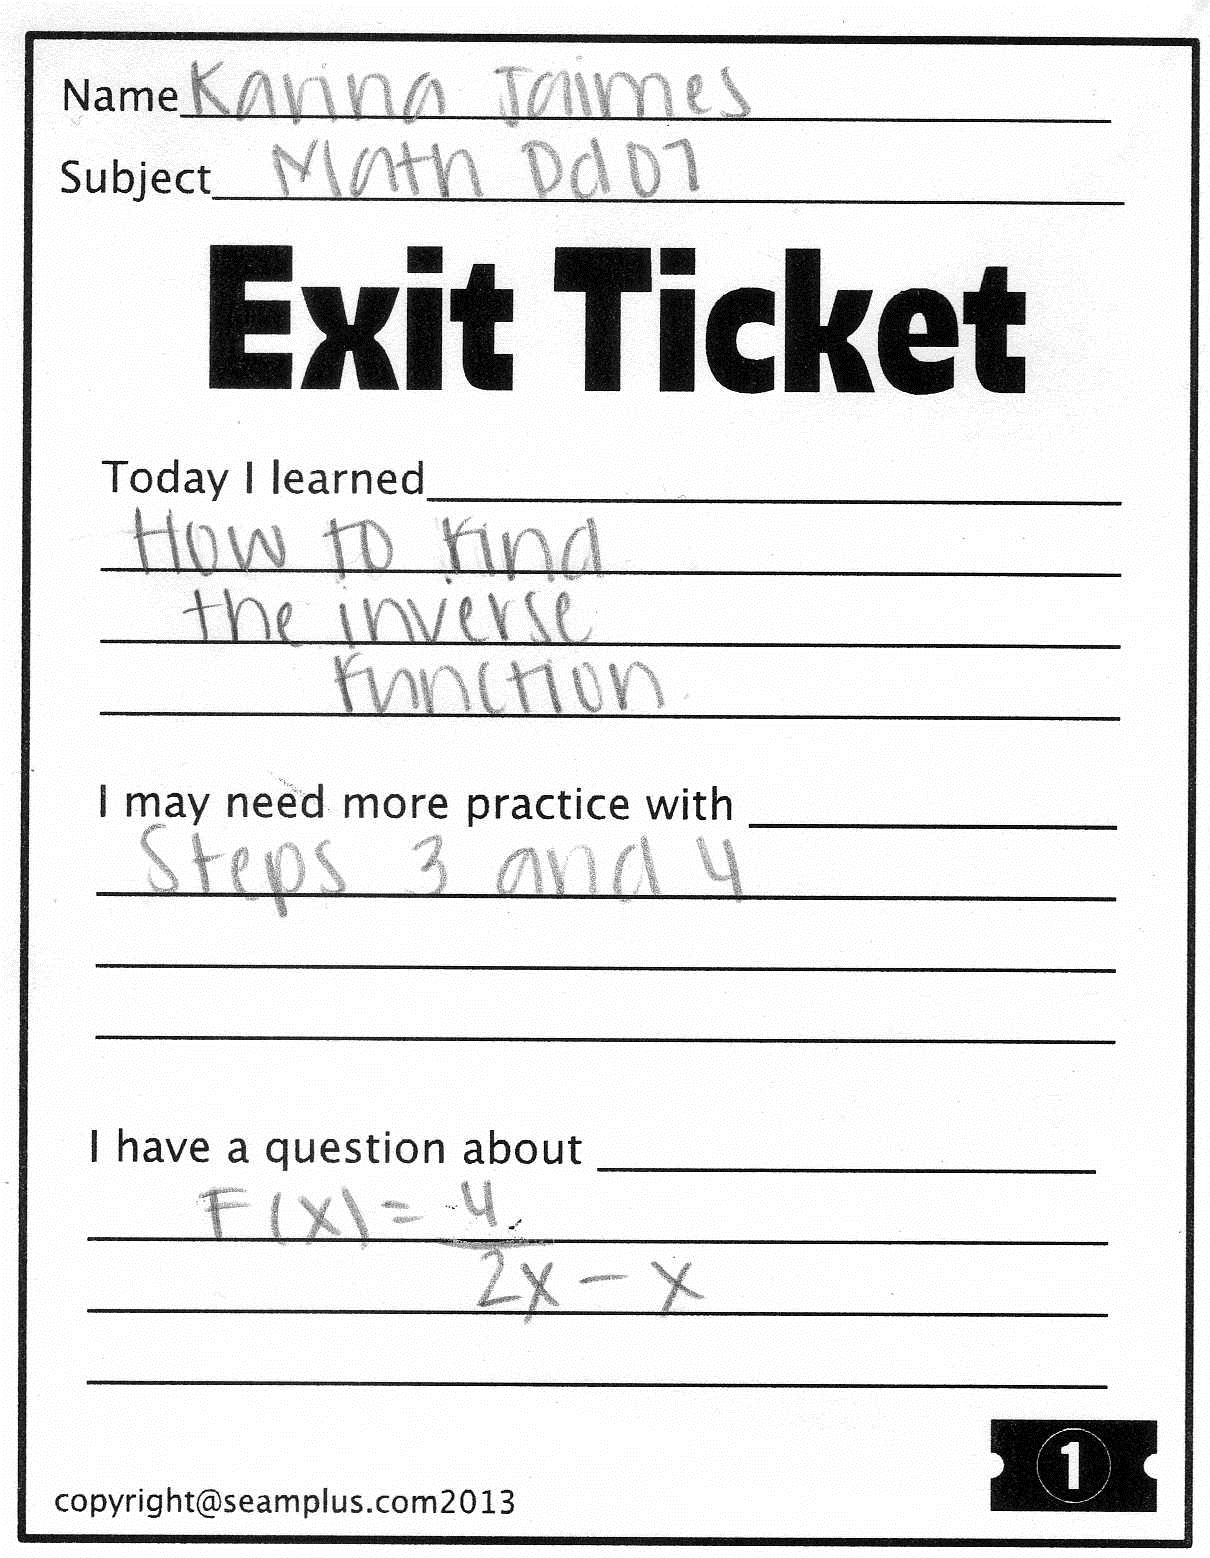 Name Karina Jaimes
Subject Math Dd07
Exit Ticket
Today I learned
How to find
the inverse
function
I may need more practice with
Steps 3 and 4
I have a question about
F(x) = 4
2x - x
1
copyright@seamplus.com2013